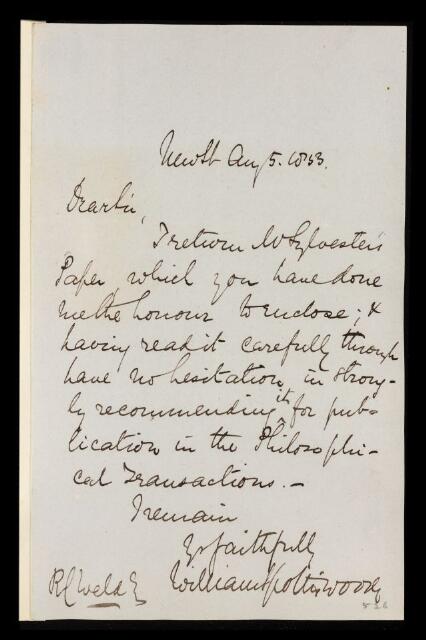 New St Aug 5. 1853.
Dear Sir,
I return Mr Sylvester's
Paper, which you have done
me the honour to enclose; &
having read it carefully through
have no hesitation in strong-
ly recommending it for pub-
lication in the Philosophi-
cal Transactions. -
I remain
Yrs faithfully
William Spottiswoode
R C Weld Esq